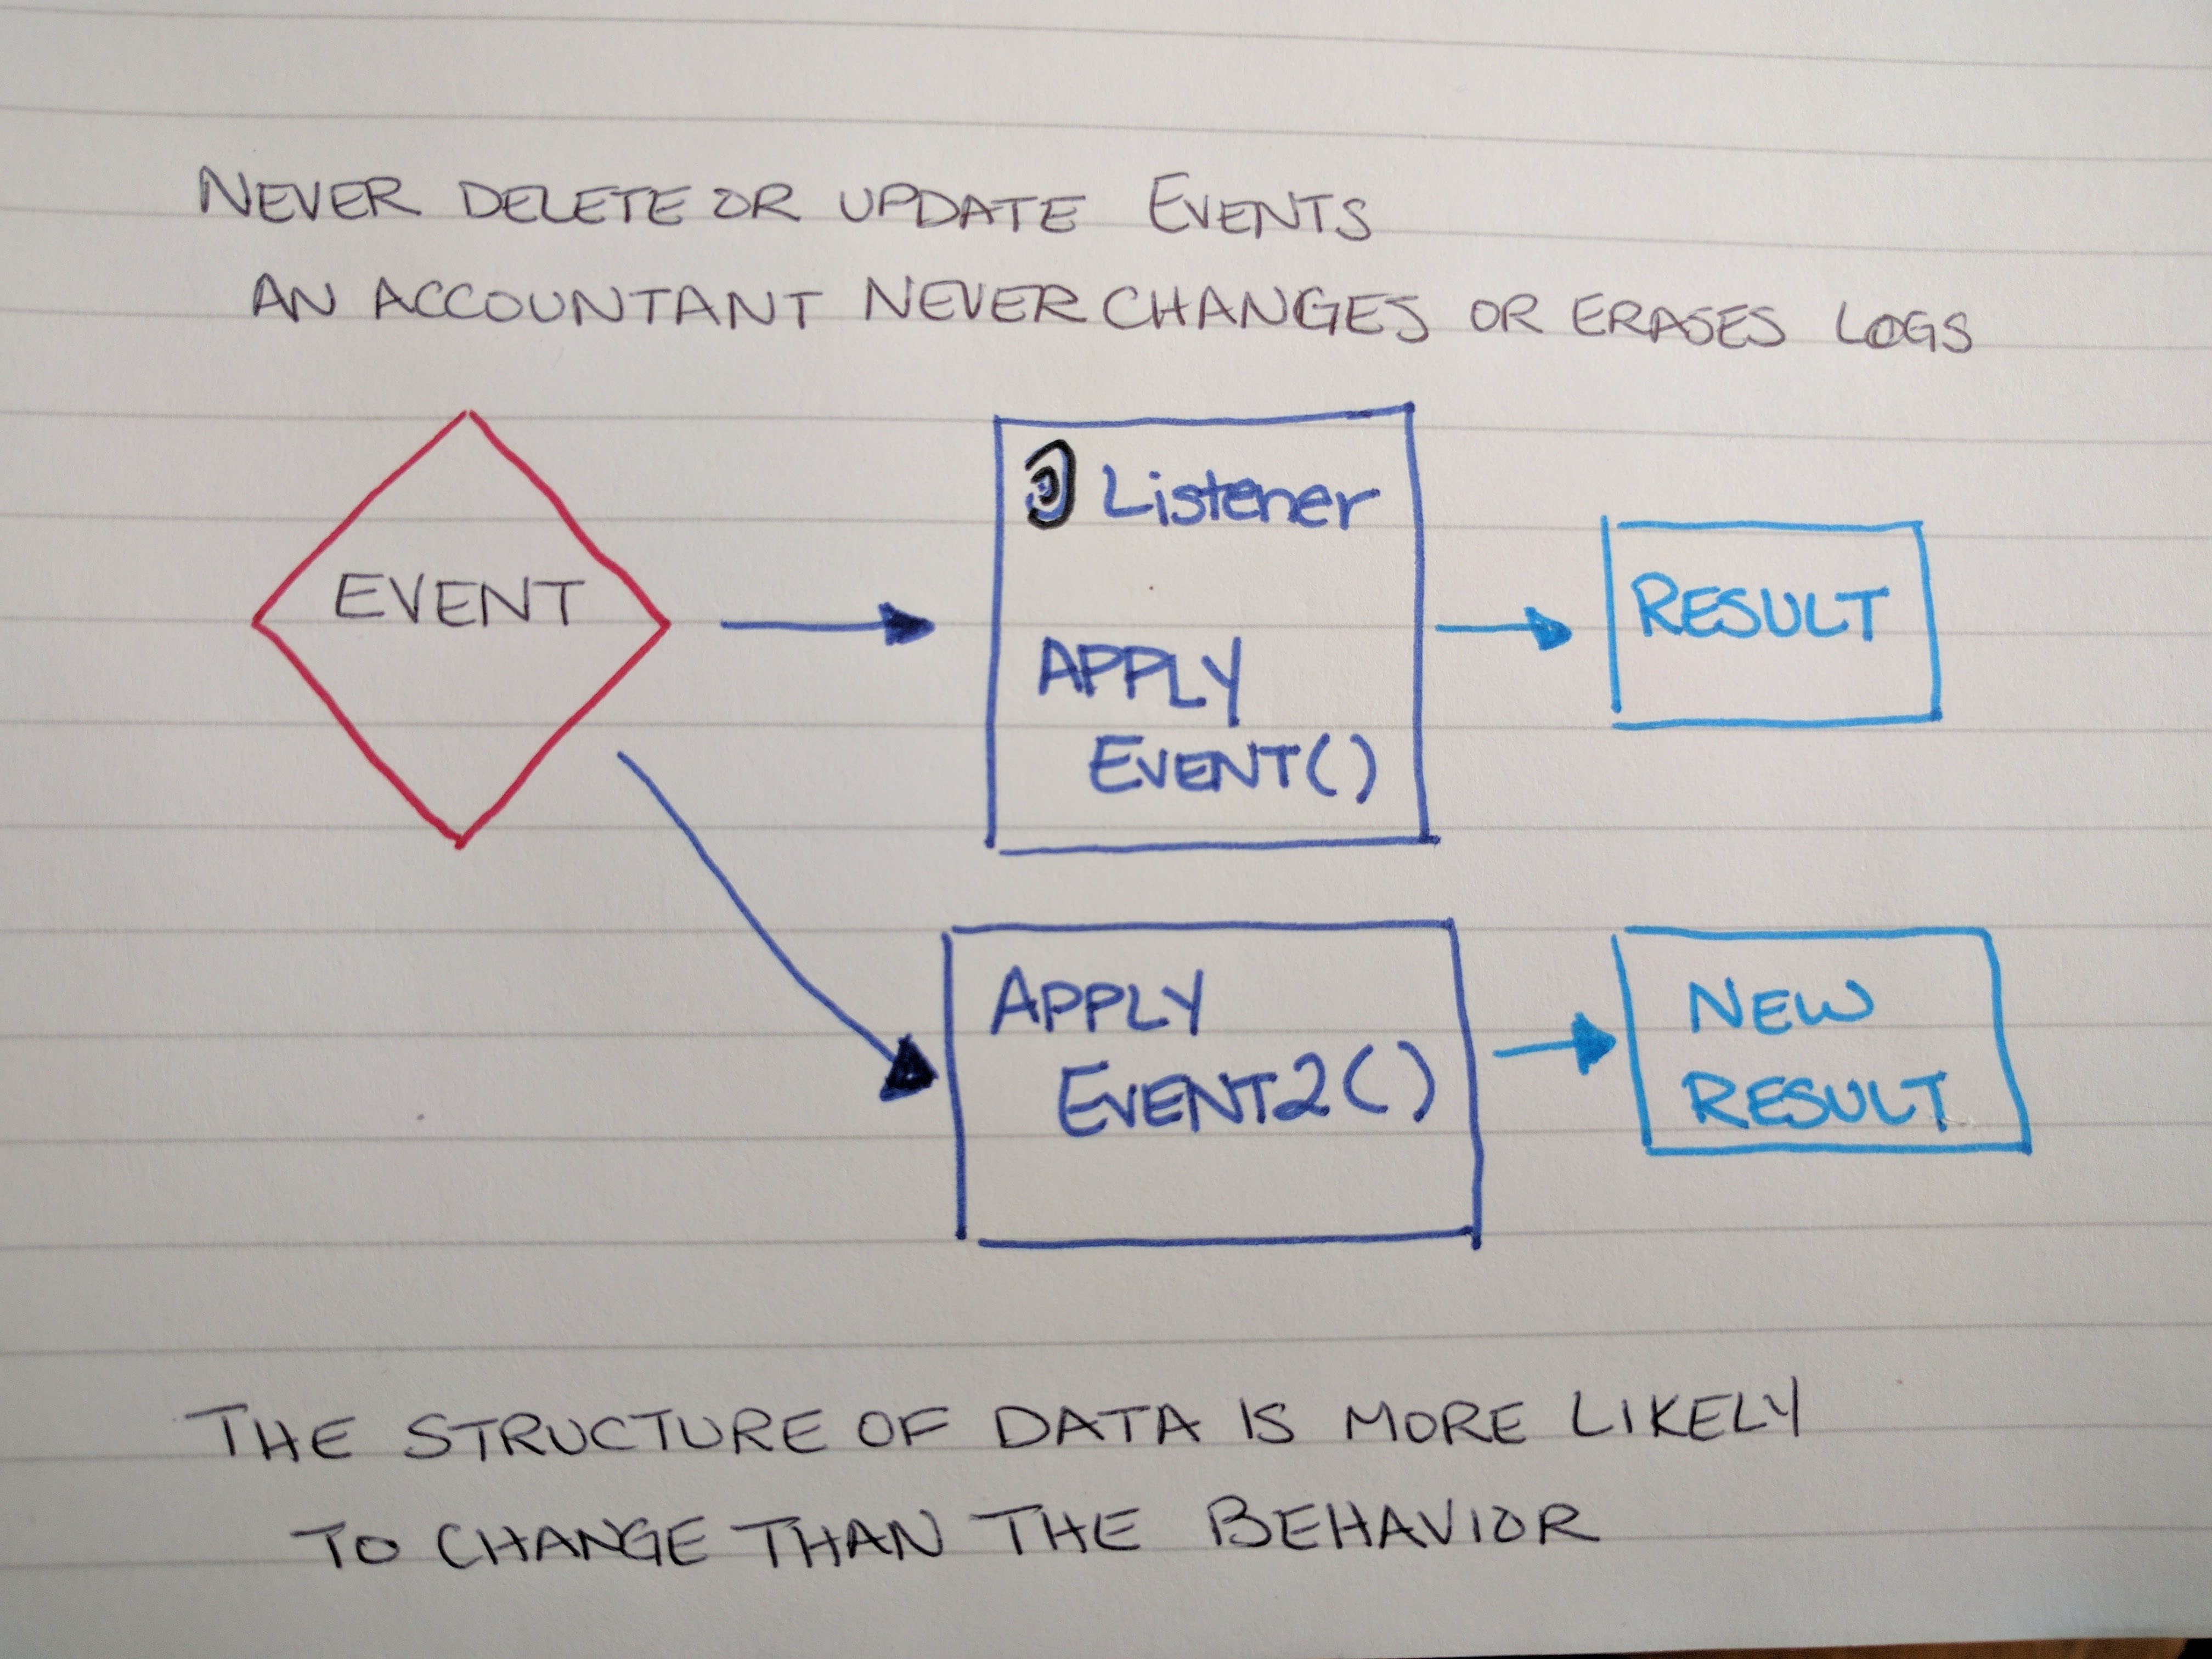 NEVER DELETE OR UPDATE EVENTS
AN ACCOUNTANT NEVER CHANGES OR ERASES LOGS
EVENT
Listener
APPLY
EVENT()
RESULT
APPLY
EVENT2()
NEW
RESULT
THE STRUCTURE OF DATA IS MORE LIKELY
TO CHANGE THAN THE BEHAVIOR